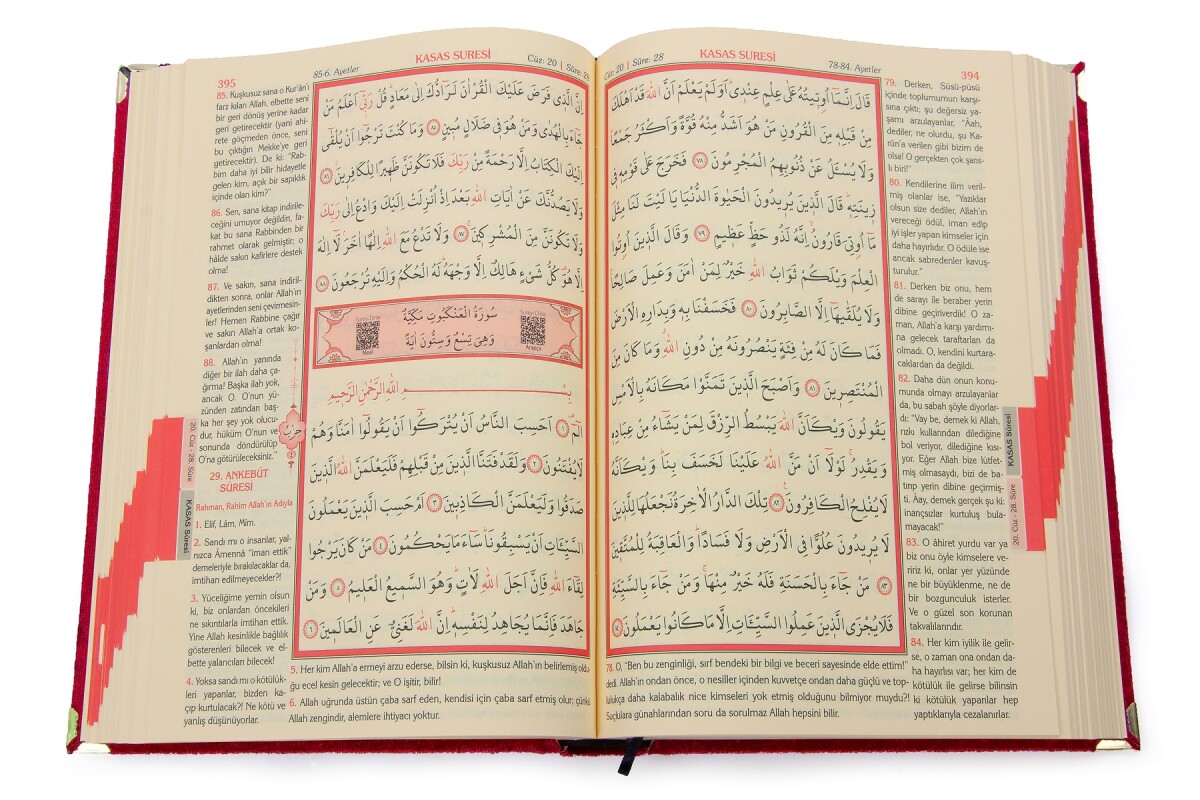 394
KASAS SURESİ
Cüz: 20 | Sûre: 28
78-84. Ayetler
قَالَ اِنَّمَٓا اُو۫ت۪يتُهُ عَلٰى عِلْمٍ عِنْد۪يۜ اَوَلَمْ يَعْلَمْ اَنَّ اللّٰهَ قَدْ اَهْلَكَ
مِنْ قَبْلِه۪ مِنَ الْقُرُونِ مَنْ هُوَ اَشَدُّ مِنْهُ قُوَّةً وَاَكْثَرُ جَمْعًاۜ
وَلَا يُسْـَٔلُ عَنْ ذُنُوبِهِمُ الْمُجْرِمُونَ ﴿٧٨﴾ فَخَرَجَ عَلٰى قَوْمِه۪ ف۪ي
ز۪ينَتِه۪ۜ قَالَ الَّذ۪ينَ يُر۪يدُونَ الْحَيٰوةَ الدُّنْيَا يَا لَيْتَ لَنَا مِثْلَ
مَٓا اُو۫تِيَ قَارُونُۙ اِنَّهُ لَذُو حَظٍّ عَظ۪يمٍ ﴿٧٩﴾ وَقَالَ الَّذ۪ينَ اُو۫تُوا
الْعِلْمَ وَيْلَكُمْ ثَوَابُ اللّٰهِ خَيْرٌ لِمَنْ اٰمَنَ وَعَمِلَ صَالِحًاۚ
وَلَا يُلَقّٰيهَٓا اِلَّا الصَّابِرُونَ ﴿٨٠﴾ فَخَسَفْنَا بِه۪ وَبِدَارِهِ الْاَرْضَ
فَمَا كَانَ لَهُ مِنْ فِئَةٍ يَنْصُرُونَهُ مِنْ دُونِ اللّٰهِ وَمَا كَانَ مِنَ
الْمُنْتَصِر۪ينَ ﴿٨١﴾ وَاَصْبَحَ الَّذ۪ينَ تَمَنَّوْا مَكَانَهُ بِالْاَمْسِ
يَقُولُونَ وَيْكَاَنَّ اللّٰهَ يَبْسُطُ الرِّزْقَ لِمَنْ يَشَٓاءُ مِنْ عِبَادِه۪
وَيَقْدِرُۚ لَوْلَٓا اَنْ مَنَّ اللّٰهُ عَلَيْنَا لَخَسَفَ بِنَاۜ وَيْكَاَنَّهُ
لَا يُفْلِحُ الْكَافِرُونَ ﴿٨٢﴾ تِلْكَ الدَّارُ الْاٰخِرَةُ نَجْعَلُهَا لِلَّذ۪ينَ
لَا يُر۪يدُونَ عُلُوًّا فِي الْاَرْضِ وَلَا فَسَادًاۜ وَالْعَاقِبَةُ لِلْمُتَّق۪ينَ
﴿٨٣﴾ مَنْ جَٓاءَ بِالْحَسَنَةِ فَلَهُ خَيْرٌ مِنْهَاۚ وَمَنْ جَٓاءَ بِالسَّيِّئَةِ
فَلَا يُجْزَى الَّذ۪ينَ عَمِلُوا السَّيِّـَٔاتِ اِلَّا مَا كَانُوا يَعْمَلُونَ ﴿٨٤﴾
78. O, "Ben bu zenginliği, sırf bendeki bir bilgi ve beceri sayesinde elde ettim!"
dedi. Allah'ın ondan önce, o nesiller içinden kuvvetçe ondan daha güçlü ve top-
lulukça daha kalabalık nice kimseleri yok etmiş olduğunu bilmiyor muydu?!
Suçlulara günahlarından soru da sorulmaz Allah hepsini bilir.
79. Derken, Süsü-püsü
içinde toplumumun karşı-
sına çıktı; şu değersiz ya-
şamı arzulayanlar, "Âah,
dediler, ne olurdu, şu Ka-
rûn'a verilen gibi bizim de
olsa! O gerçekten çok şans-
lı biri!"
80. Kendilerine ilim veril-
miş olanlar ise, "Yazıklar
olsun size dediler, Allah'ın
vereceği ödül, iman edip
iyi işler yapan kimseler için
daha hayırlıdır. O ödüle ise
ancak sabredenler kavuş-
turulur."
81. Derken biz onu, hem
de sarayı ile beraber yerin
dibine geçiriverdik! O za-
man, Allah'a karşı yardımı-
na gelecek taraftarları da
olmadı. O, kendini kurtara-
caklardan da değildi.
82. Daha dün onun konu-
munda olmayı arzulayanlar
da, bu sabah şöyle diyorlar-
dı: "Vay be, demek ki Allah,
rızkı kullarından dilediğine
bol veriyor, dilediğine kısı-
yor. Eğer Allah bize lütfet-
miş olmasaydı, bizi de ba-
tırıp yerin dibine geçirmiş-
ti. Âay, demek gerçek şu ki:
inançsızlar kurtuluş bula-
mayacak!"
83. O âhiret yurdu var ya
biz onu öyle kimselere ve-
ririz ki, onlar yer yüzünde
ne bir büyüklenme, ne de
bir bozgunculuk isterler.
Ve o güzel son korunan
takvalılarındır.
84. Her kim iyilik ile gelir-
se, o zaman ona ondan da-
ha hayırlısı var; her kim de
kötülük ile gelirse bilinsin
ki kötülük yapanlar hep
yaptıklarıyla cezalanırlar.
KASAS Sûresi
20. Cüz - 28. Sûre
395
85-6. Ayetler
KASAS SURESİ
Cüz: 20 | Sûre: 28
اِنَّ الَّذ۪ي فَرَضَ عَلَيْكَ الْقُرْاٰنَ لَرَٓادُّكَ اِلٰى مَعَادٍۜ قُلْ رَبّ۪ٓي اَعْلَمُ مَنْ
جَٓاءَ بِالْهُدٰى وَمَنْ هُوَ ف۪ي ضَلَالٍ مُب۪ينٍ ﴿٨٥﴾ وَمَا كُنْتَ تَرْجُٓوا اَنْ يُلْقٰٓى
اِلَيْكَ الْكِتَابُ اِلَّا رَحْمَةً مِنْ رَبِّكَ فَلَا تَكُونَنَّ ظَه۪يرًا لِلْكَافِر۪ينَۘ ﴿٨٦﴾
وَلَا يَصُدُّنَّكَ عَنْ اٰيَاتِ اللّٰهِ بَعْدَ اِذْ اُنْزِلَتْ اِلَيْكَ وَادْعُ اِلٰى رَبِّكَ
وَلَا تَكُونَنَّ مِنَ الْمُشْرِك۪ينَۚ ﴿٨٧﴾ وَلَا تَدْعُ مَعَ اللّٰهِ اِلٰهًا اٰخَرَۢ لَٓا اِلٰهَ
اِلَّا هُوَ۠ كُلُّ شَيْءٍ هَالِكٌ اِلَّا وَجْهَهُۜ لَهُ الْحُكْمُ وَاِلَيْهِ تُرْجَعُونَ ﴿٨٨﴾
سُورَةُ الْعَنْكَبُوتِ مَكِّيَّةٌ
وَهِيَ تِسْعٌ وَسِتُّونَ اٰيَةً
Sureyi Dinle
Meal
Sureyi Dinle
Arapça
بِسْمِ اللّٰهِ الرَّحْمٰنِ الرَّح۪يمِ
الٓمٓۜ ﴿١﴾ اَحَسِبَ النَّاسُ اَنْ يُتْرَكُٓوا اَنْ يَقُولُٓوا اٰمَنَّا وَهُمْ
لَا يُفْتَنُونَ ﴿٢﴾ وَلَقَدْ فَتَنَّا الَّذ۪ينَ مِنْ قَبْلِهِمْ فَلَيَعْلَمَنَّ اللّٰهُ الَّذ۪ينَ
صَدَقُوا وَلَيَعْلَمَنَّ الْكَاذِب۪ينَ ﴿٣﴾ اَمْ حَسِبَ الَّذ۪ينَ يَعْمَلُونَ
السَّيِّـَٔاتِ اَنْ يَسْبِقُونَاۜ سَٓاءَ مَا يَحْكُمُونَ ﴿٤﴾ مَنْ كَانَ يَرْجُوا
لِقَٓاءَ اللّٰهِ فَاِنَّ اَجَلَ اللّٰهِ لَاٰتٍۜ وَهُوَ السَّم۪يعُ الْعَل۪يمُ ﴿٥﴾ وَمَنْ
جَاهَدَ فَاِنَّمَا يُجَاهِدُ لِنَفْسِه۪ۜ اِنَّ اللّٰهَ لَغَنِيٌّ عَنِ الْعَالَم۪ينَ ﴿٦﴾
حِزْبٌ
٤
85. Kuşkusuz sana o Kur'ân'ı
farz kılan Allah, elbette seni
bir geri dönüş yerine kadar
geri getirecektir (yani ahi-
rete göçmeden önce, seni
bu çıktığın Mekke'ye geri
getirecektir). De ki: "Rab-
bim daha iyi bilir hidayetle
gelen kim, açık bir sapıklık
içinde olan kim?"
86. Sen, sana kitap indirile-
ceğini umuyor değildin, fa-
kat bu sana Rabbinden bir
rahmet olarak gelmiştir; o
hâlde sakın kafirlere destek
olma!
87. Ve sakın, sana indiril-
dikten sonra, onlar Allah'ın
ayetlerinden seni çevirmesin-
ler! Hemen Rabbine çağır
ve sakın Allah'a ortak ko-
şanlardan olma!
88. Allah'ın yanında
diğer bir ilah daha ça-
ğırma! Başka ilah yok,
ancak O. O'nun yü-
zünden zatından baş-
ka her şey yok olucu-
dur, hüküm O'nun ve
sonunda döndürülüp
O'na götürüleceksiniz."
29. ANKEBÛT
SÛRESİ
Rahman, Rahim Allah'ın Adıyla
1. Elif, Lâm, Mîm.
2. Sandı mı o insanlar, yal-
nızca Âmennâ "iman ettik"
demeleriyle bırakılacaklar da,
imtihan edilmeyecekler?!
3. Yüceliğime yemin olsun
ki, biz onlardan öncekileri
ne sıkıntılarla imtihan ettik.
Yine Allah kesinlikle bağlılık
gösterenleri bilecek ve el-
bette yalancıları bilecek!
4. Yoksa sandı mı o kötülük-
leri yapanlar, bizden ka-
çıp kurtulacak?! Ne kötü ve
yanlış düşünüyorlar.
5. Her kim Allah'a ermeyi arzu ederse, bilsin ki, kuşkusuz Allah'ın belirlemiş oldu-
ğu ecel kesin gelecektir; ve O işitir, bilir!
6. Allah uğrunda üstün çaba sarf eden, kendisi için çaba sarf etmiş olur; çünkü
Allah zengindir, alemlere ihtiyacı yoktur.
20. Cüz - 28. Sûre
KASAS Sûresi